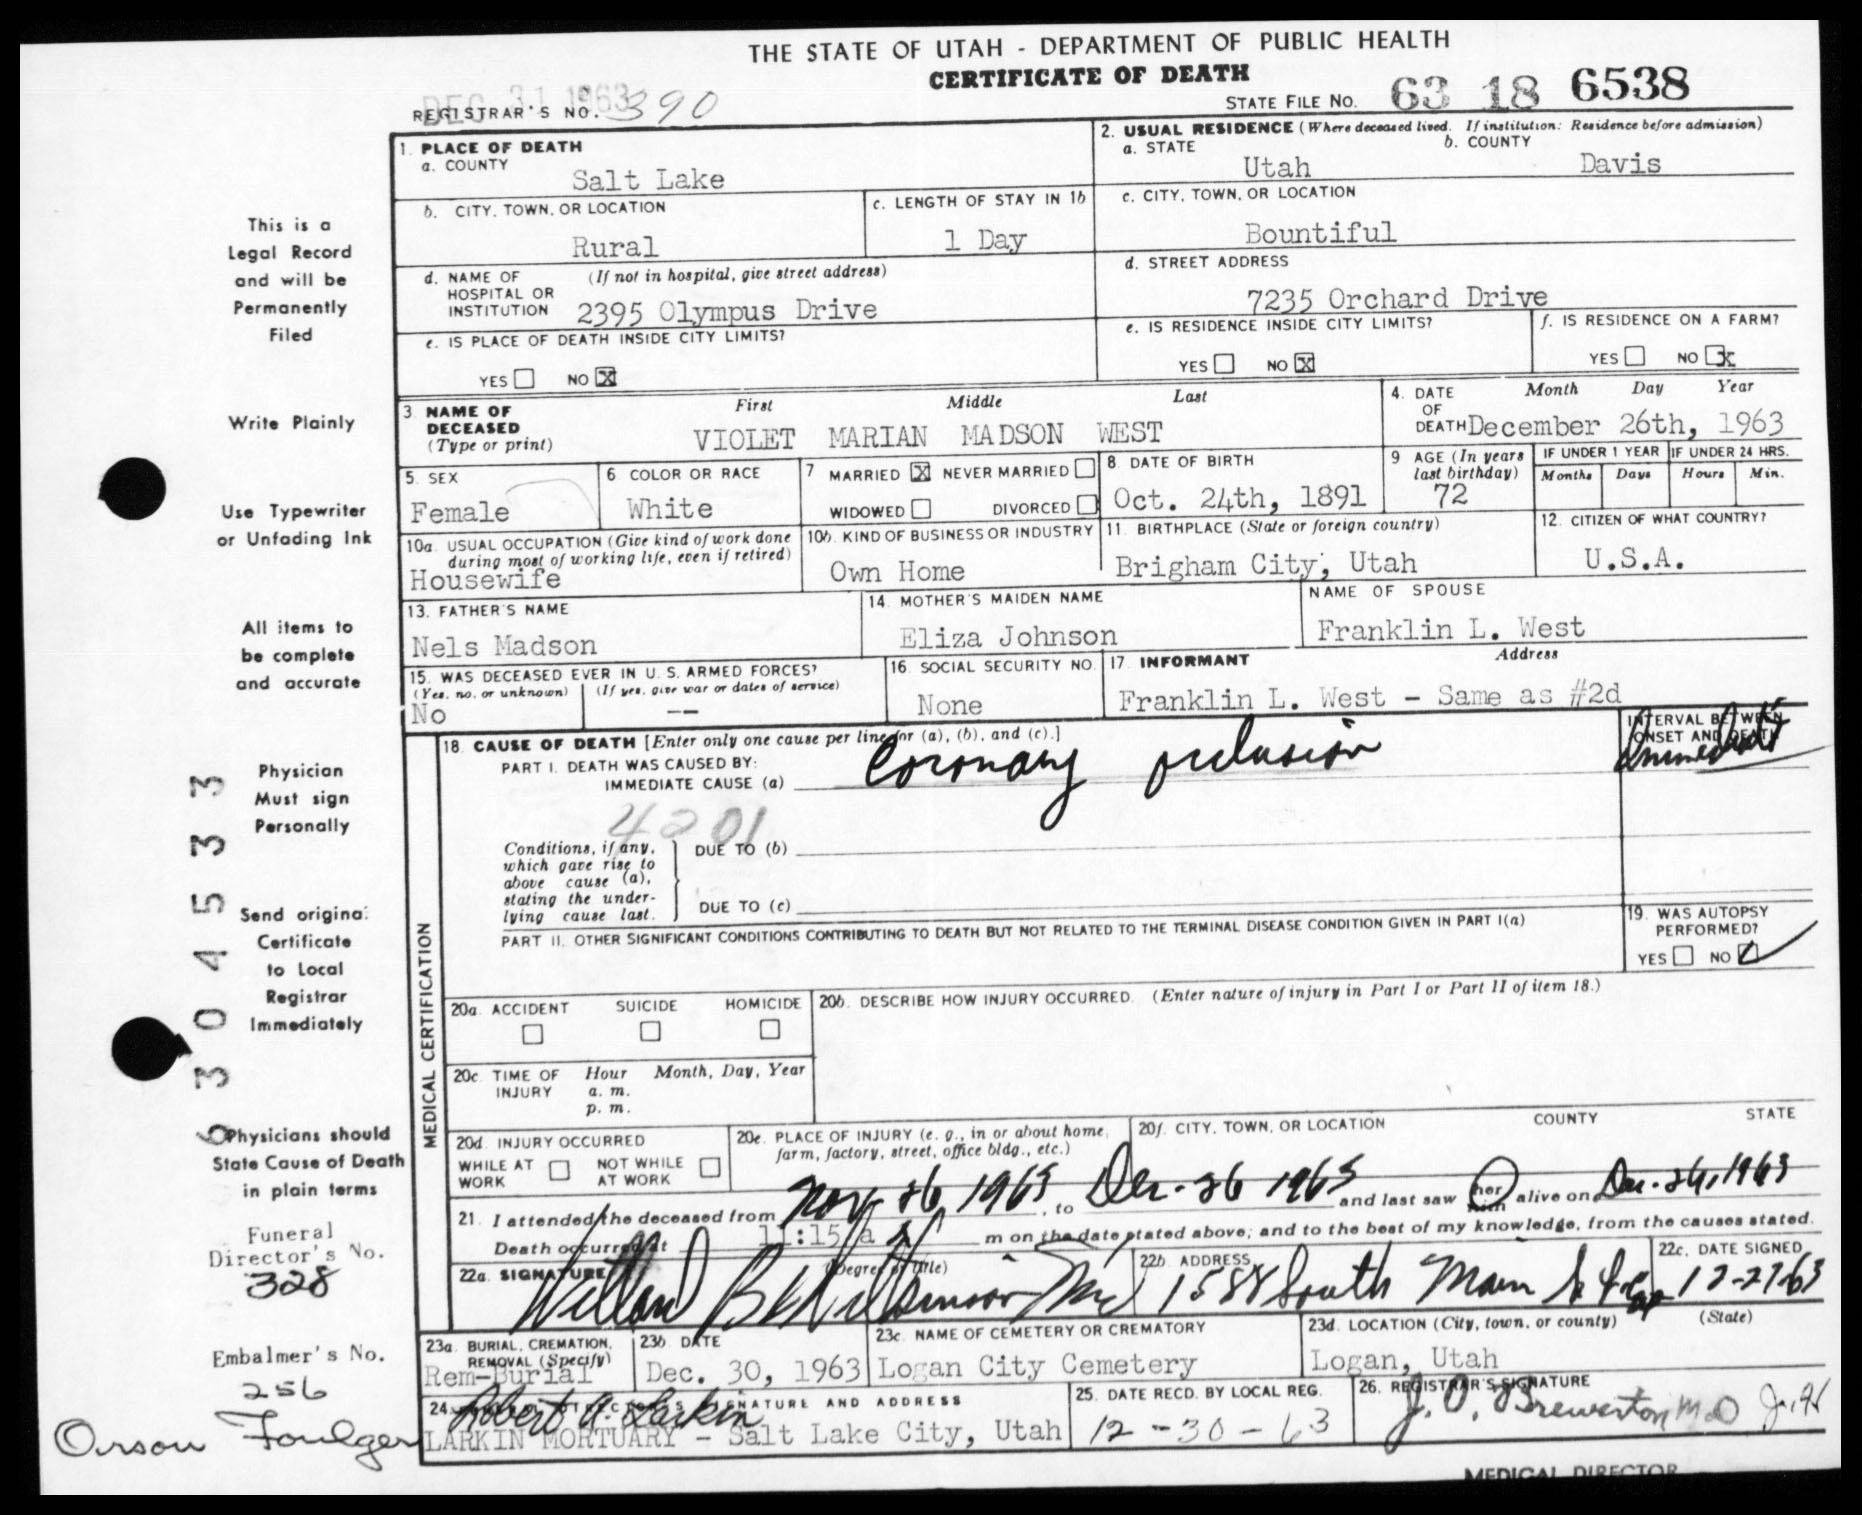 THE STATE OF UTAH - DEPARTMENT OF PUBLIC HEALTH
CERTIFICATE OF DEATH
DEC 31 1963
REGISTRAR'S NO. 390
STATE FILE NO. 63 18 6538
1. PLACE OF DEATH
a. COUNTY
Salt Lake
2. USUAL RESIDENCE (Where deceased lived. If institution: Residence before admission)
a. STATE
Utah
b. COUNTY
Davis
b. CITY, TOWN, OR LOCATION
Rural
c. LENGTH OF STAY IN 1b
1 Day
c. CITY, TOWN, OR LOCATION
Bountiful
d. NAME OF HOSPITAL OR INSTITUTION
(If not in hospital, give street address)
2395 Olympus Drive
d. STREET ADDRESS
7235 Orchard Drive
e. IS PLACE OF DEATH INSIDE CITY LIMITS?
YES NO X
e. IS RESIDENCE INSIDE CITY LIMITS?
YES NO X
f. IS RESIDENCE ON A FARM?
YES NO X
3. NAME OF DECEASED
(Type or print)
First Middle Last
VIOLET MARIAN MADSON WEST
4. DATE OF DEATH
Month Day Year
December 26th, 1963
5. SEX
Female
6 COLOR OR RACE
White
7 MARRIED X NEVER MARRIED
WIDOWED DIVORCED
8. DATE OF BIRTH
Oct. 24th, 1891
9 AGE (In years last birthday)
72
IF UNDER 1 YEAR
Months Days
IF UNDER 24 HRS.
Hours Min.
10a. USUAL OCCUPATION (Give kind of work done
during most of working life, even if retired)
Housewife
10b. KIND OF BUSINESS OR INDUSTRY
Own Home
11. BIRTHPLACE (State or foreign country)
Brigham City, Utah
12. CITIZEN OF WHAT COUNTRY?
U.S.A.
13. FATHER'S NAME
Nels Madson
14. MOTHER'S MAIDEN NAME
Eliza Johnson
NAME OF SPOUSE
Franklin L. West
15. WAS DECEASED EVER IN U. S. ARMED FORCES?
(Yes, no, or unknown) (If yes, give war or dates of service)
No --
16. SOCIAL SECURITY NO.
None
17. INFORMANT Address
Franklin L. West - Same as #2d
MEDICAL CERTIFICATION
18. CAUSE OF DEATH [Enter only one cause per line for (a), (b), and (c).]
PART I. DEATH WAS CAUSED BY:
IMMEDIATE CAUSE (a) Coronary occlusion
INTERVAL BETWEEN
ONSET AND DEATH
Immediate
4201
Conditions, if any,
which gave rise to
above cause (a),
stating the under-
lying cause last.
DUE TO (b)
DUE TO (c)
PART II. OTHER SIGNIFICANT CONDITIONS CONTRIBUTING TO DEATH BUT NOT RELATED TO THE TERMINAL DISEASE CONDITION GIVEN IN PART I(a)
19. WAS AUTOPSY
PERFORMED?
YES NO ✓
20a. ACCIDENT SUICIDE HOMICIDE
20b. DESCRIBE HOW INJURY OCCURRED. (Enter nature of injury in Part I or Part II of item 18.)
20c. TIME OF INJURY
Hour Month, Day, Year
a. m.
p. m.
20d. INJURY OCCURRED
WHILE AT WORK NOT WHILE AT WORK
20e. PLACE OF INJURY (e. g., in or about home,
farm, factory, street, office bldg., etc.)
20f. CITY, TOWN, OR LOCATION COUNTY STATE
21. I attended the deceased from Nov 26 1963, to Dec. 26 1963 and last saw her him alive on Dec. 26, 1963
Death occurred at 11:15 a m on the date stated above; and to the best of my knowledge, from the causes stated.
22a. SIGNATURE (Degree or title)
Willard B Wilkinson MD
22b. ADDRESS
1588 South Main
22c. DATE SIGNED
12-27-63
23a. BURIAL, CREMATION,
REMOVAL (Specify)
Rem-Burial
23b. DATE
Dec. 30, 1963
23c. NAME OF CEMETERY OR CREMATORY
Logan City Cemetery
23d. LOCATION (City, town, or county) (State)
Logan, Utah
24. FUNERAL DIRECTOR'S SIGNATURE AND ADDRESS
Robert A. Larkin
LARKIN MORTUARY - Salt Lake City, Utah
25. DATE RECD. BY LOCAL REG.
12-30-63
26. REGISTRAR'S SIGNATURE
J. O. Brewerton M.D
MEDICAL DIRECTOR
This is a
Legal Record
and will be
Permanently
Filed
Write Plainly
Use Typewriter
or Unfading Ink
All items to
be complete
and accurate
Physician
Must sign
Personally
Send original
Certificate
to Local
Registrar
Immediately
Physicians should
State Cause of Death
in plain terms
6 3 0 4 5 3 3
Funeral
Director's No.
328
Embalmer's No.
256
Orson Foulger